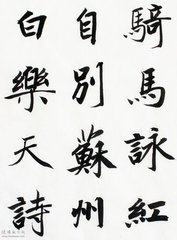 騎馬詠紅
自別蘇州
白樂天詩